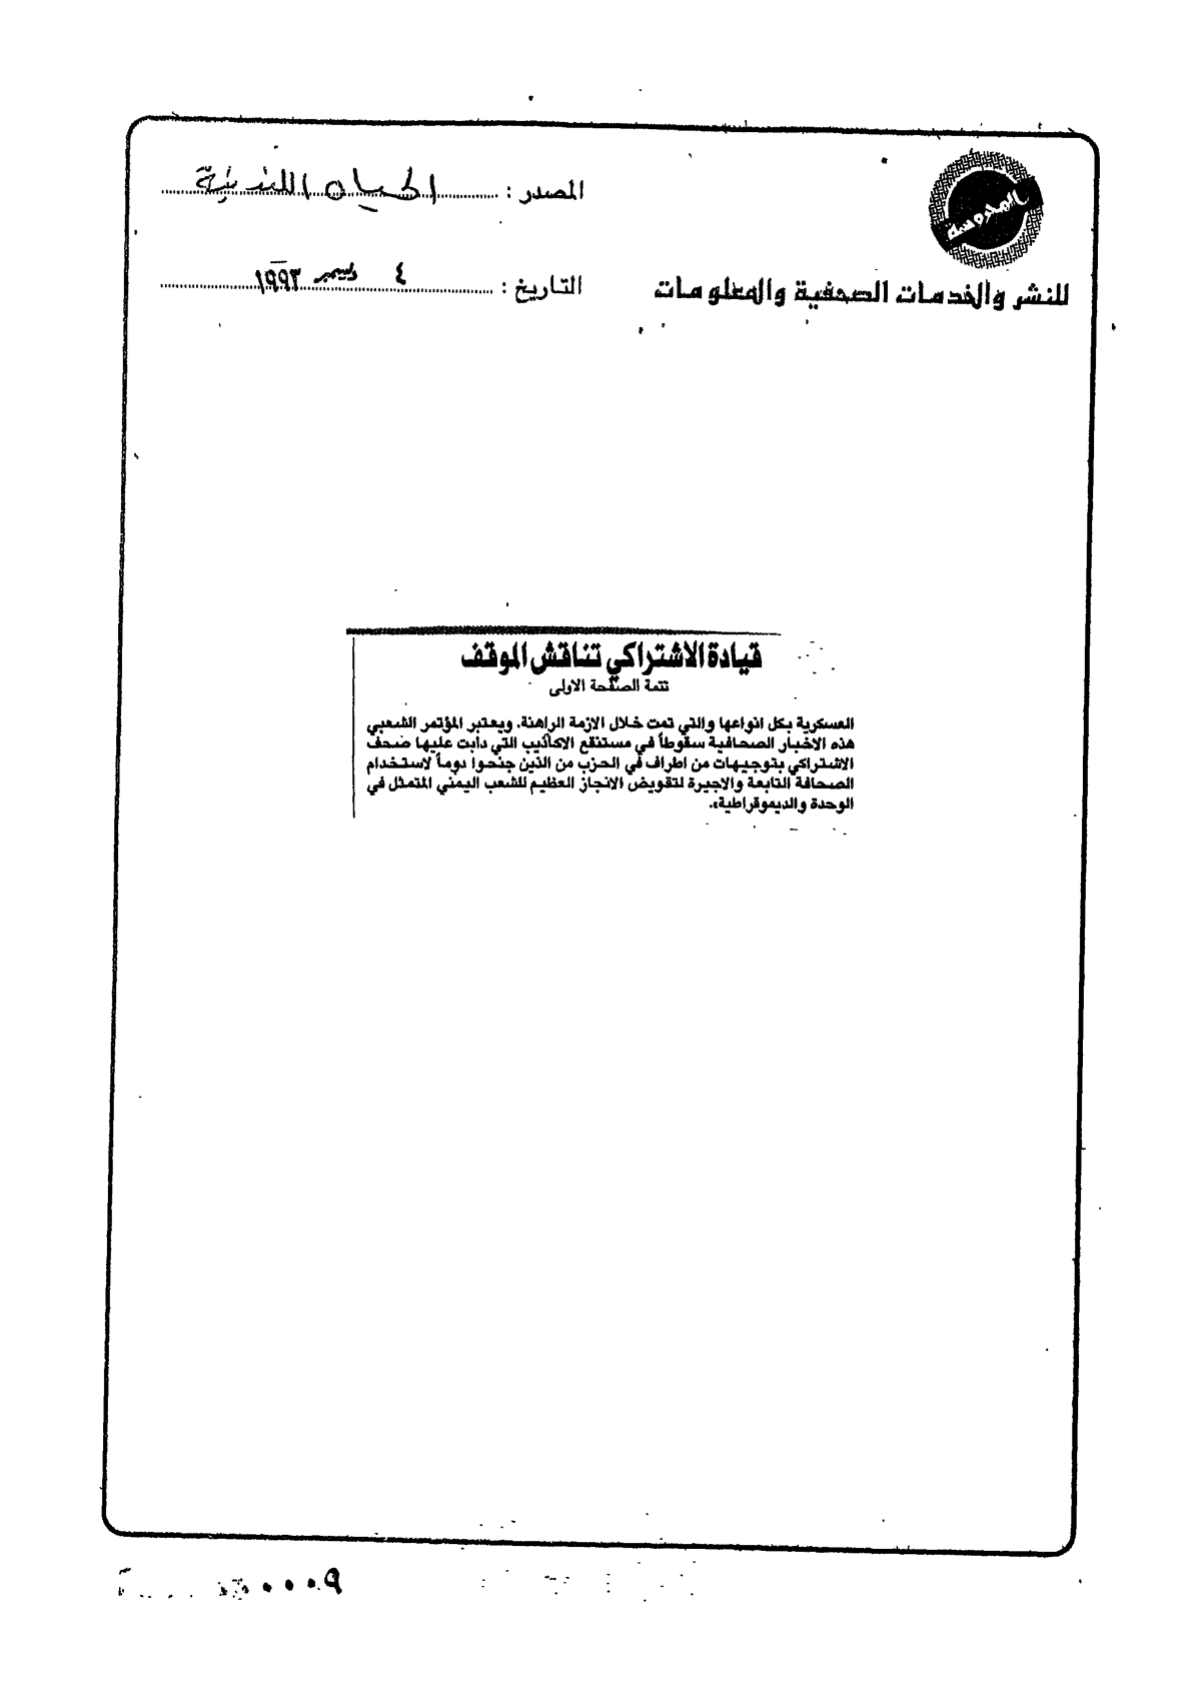 المحروسة
للنشر والخدمات الصحفية والمعلومات
المصدر : الحياه اللندنية
التاريخ : ٤ ديسمبر ١٩٩٣
قيادة الاشتراكي تناقش الموقف
تتمة الصفحة الاولى
العسكرية بكل انواعها والتي تمت خلال الازمة الراهنة. ويعتبر المؤتمر الشعبي
هذه الاخبار الصحافية سقوطاً في مستنقع الاكاذيب التي دابت عليها صحف
الاشتراكي بتوجيهات من اطراف في الحزب من الذين جنحوا دوماً لاستخدام
الصحافة التابعة والاجيرة لتقويض الانجاز العظيم للشعب اليمني المتمثل في
الوحدة والديموقراطية».